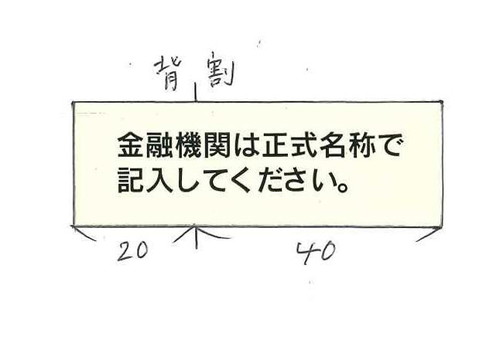 背割
金融機関は正式名称で
記入してください。
20
40